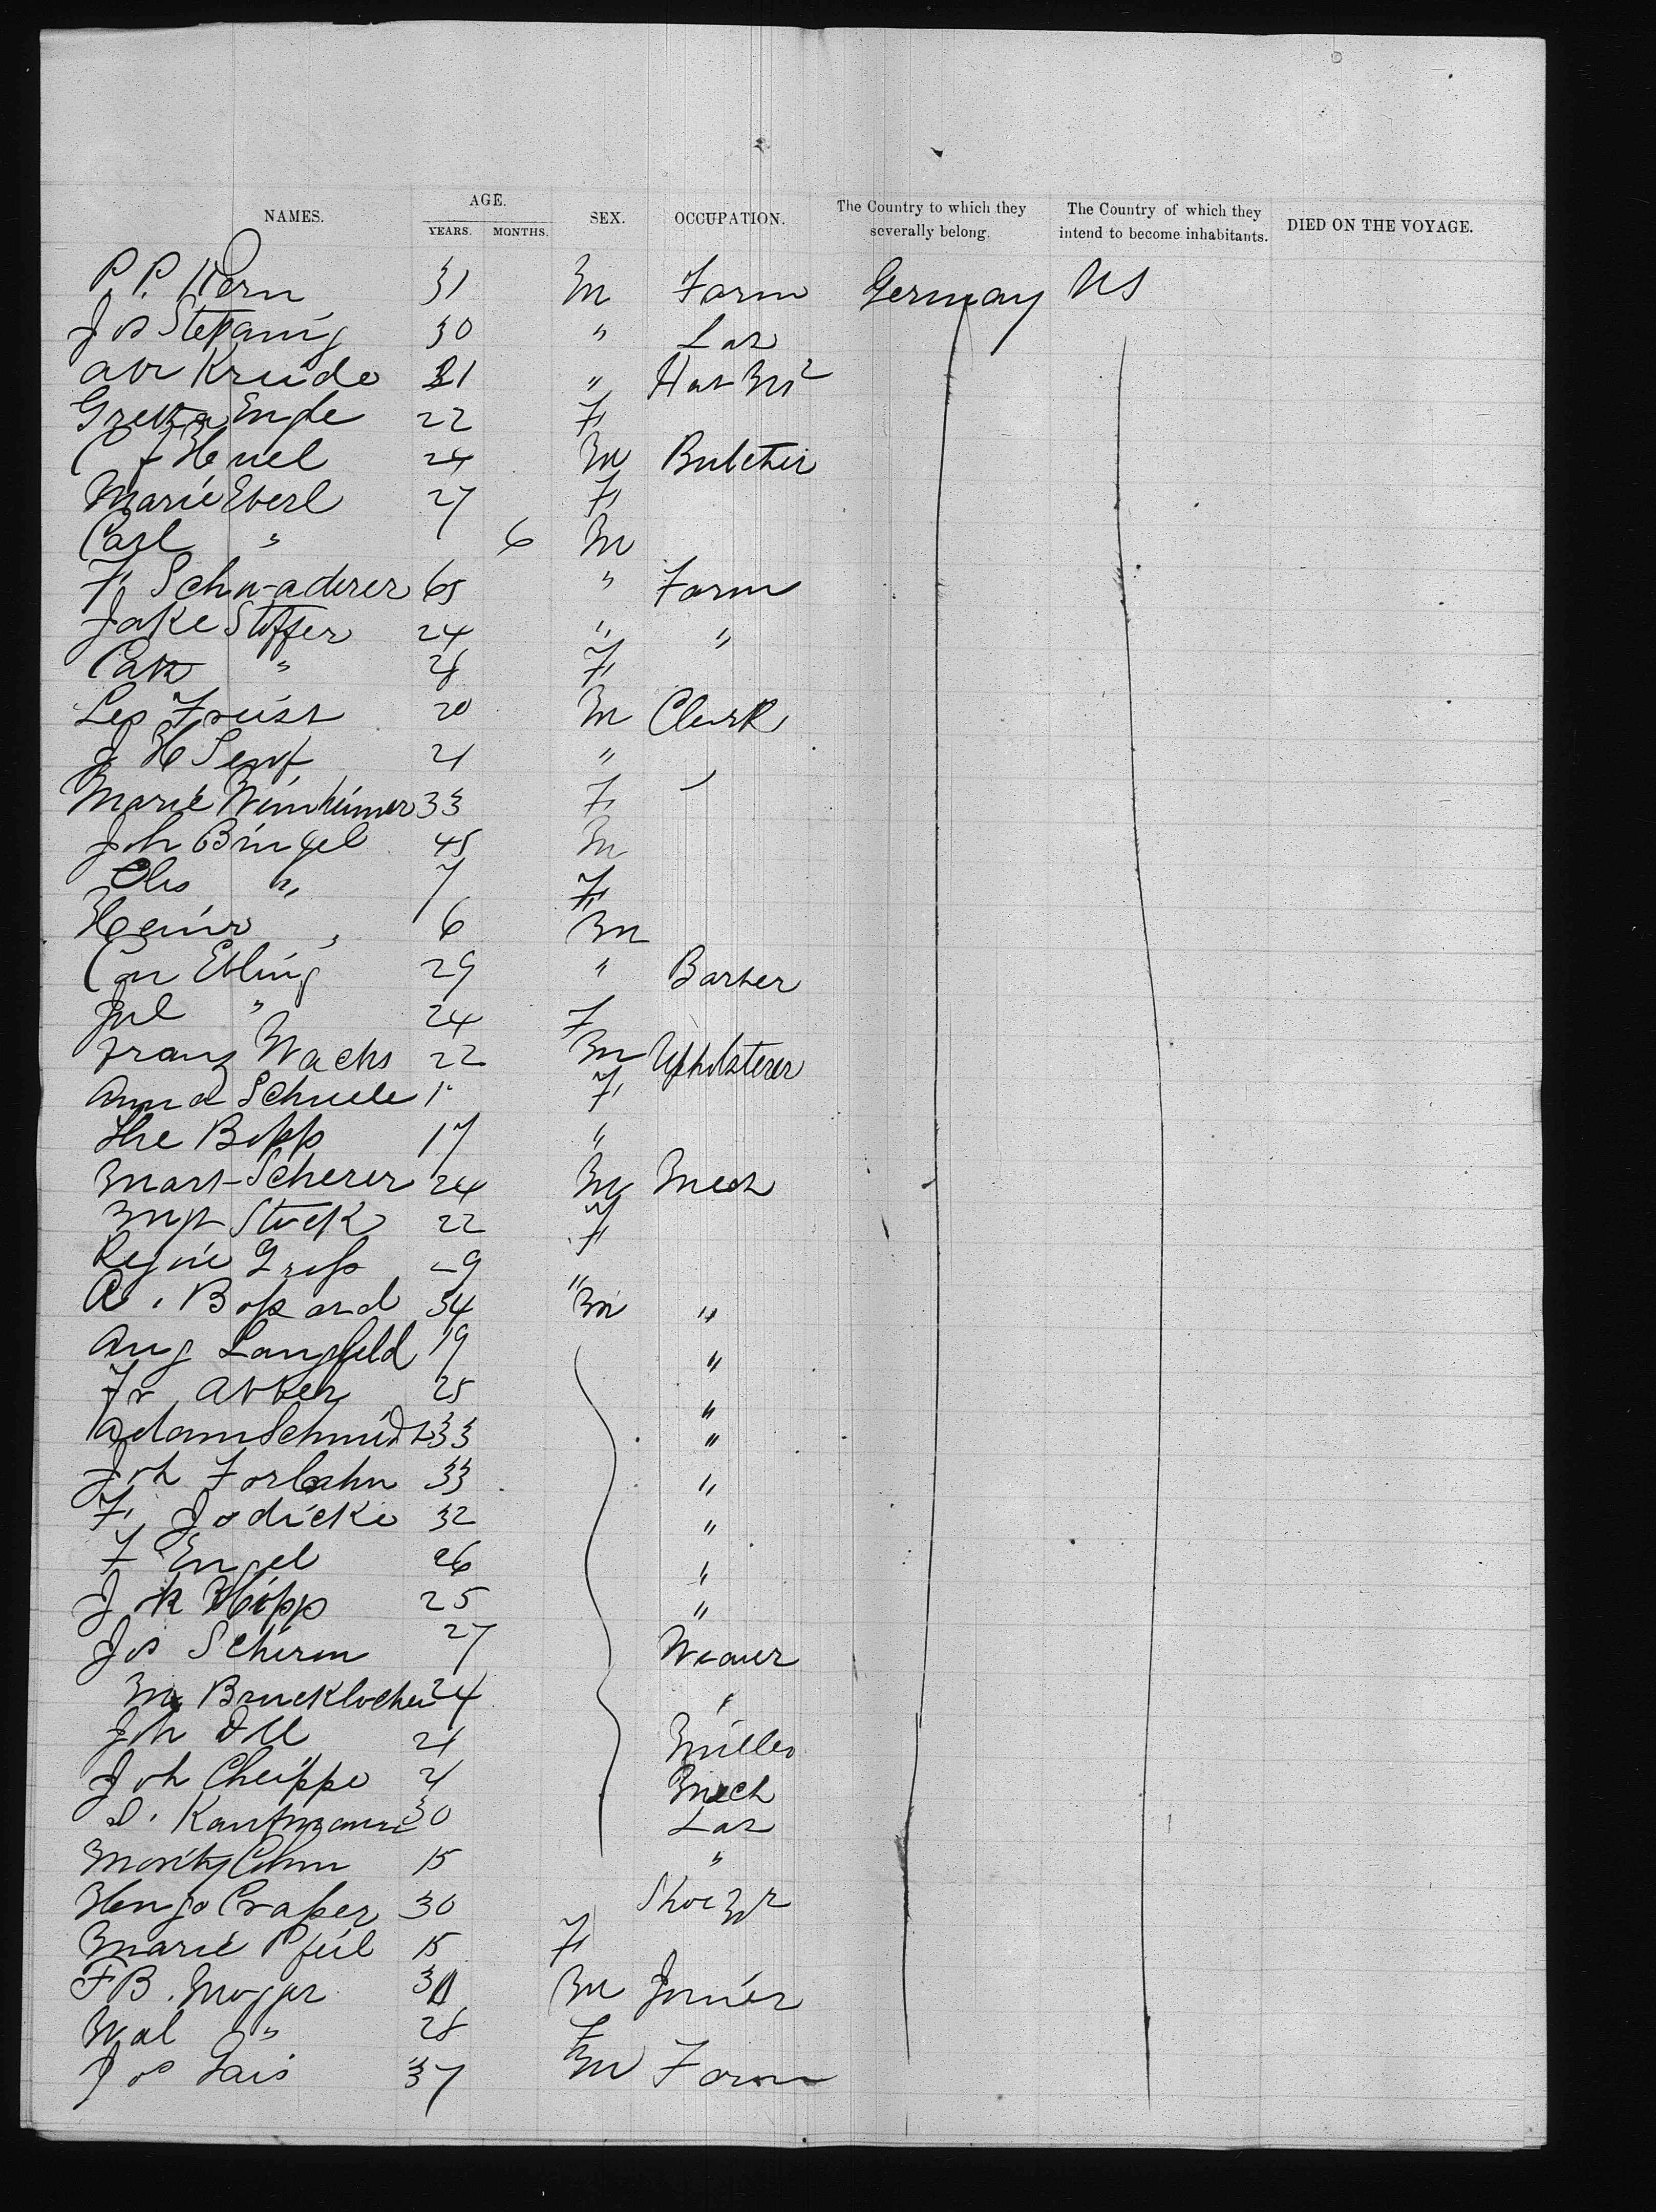 NAMES. AGE. YEARS. MONTHS. SEX. OCCUPATION. The Country to which they severally belong. The Country of which they intend to become inhabitants. DIED ON THE VOYAGE.
P. P. Kern 31 M Farm Germany US
Jos Stefanig 30 " Lab
31 " Hat Mr
22 F
24 M Butcher
Marie Eberl 27 F
Carl " 6 M
F. Schwaderer 65 " Farm
Jake Stoffer 24 " "
Cath " 28 F
20 M Clerk
J H Senf 21 "
Marie Weinheimer 33 F
Joh Bingel 45 M
Elis " 7 F
Heinr " 6 M
Con Ebling 29 " Barber
Jul " 24 F
Franz Wachs 22 M Upholsterer
Anna Schuele F
The Bopp 17 "
Mart Scherer 24 M Mech
Stock 22 F
Regine Groß 29 "
A. Boßard 34 M "
Aug Langfeld 19 "
Fr 25 "
Adam Schmidt 33 "
Joh Forbahn 33 "
F. Jodicke 32 "
F Engel 26 "
Joh Hopp 25 "
Jos Schirm 27 Weaver
M Brucklocher 24 "
Joh Dll 21 Miller
Joh Cheippe 21 Mech
D. Kaufmann 30 Lab
Moritz Cohn 15 "
30 Shoe Mr
Marie Pfeil 15 F
F B. Moger M Joiner
Wal " 28 F
Jos Lais 37 M Farm